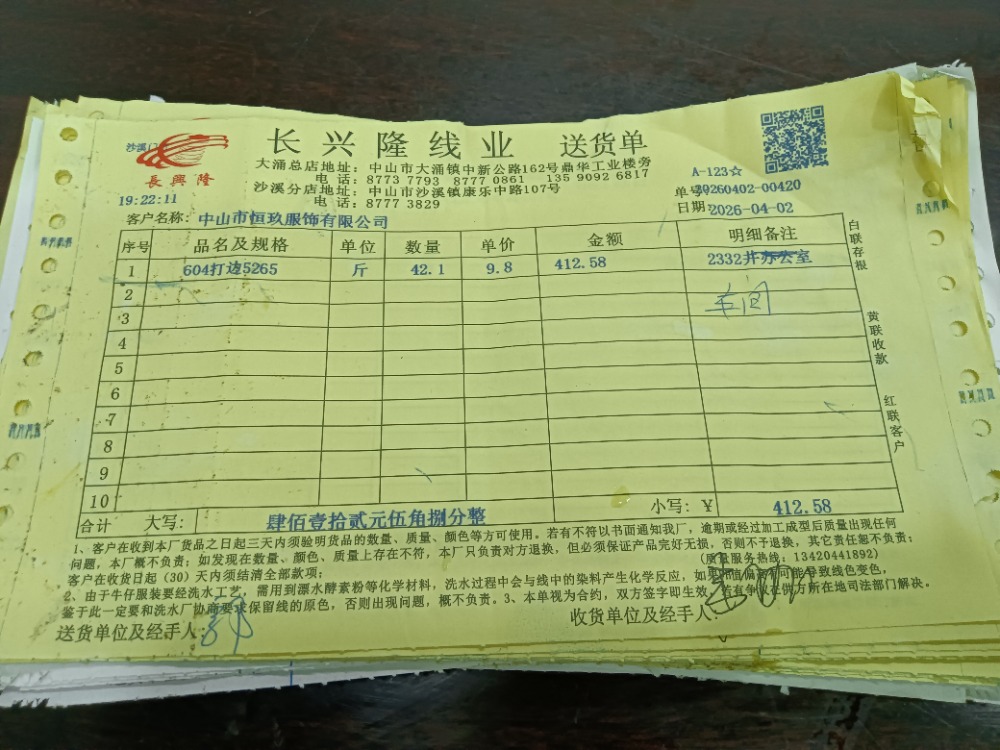 长兴隆线业 送货单
長興隆
沙溪
大涌总店地址：中山市大涌镇中新公路162号鼎华工业楼旁
电话：8773 7793 8777 0861 135 9092 6817
沙溪分店地址：中山市沙溪镇康乐中路107号
电话：8777 3829
A-123☆
19:22:11
单号20260402-00420
客户名称：中山市恒玖服饰有限公司
日期2026-04-02
序号 品名及规格 单位 数量 单价 金额 明细备注
1 604打边5265 斤 42.1 9.8 412.58 2332井办公室
2
车间
3
4
5
6
7
8
9
10
合计 大写：肆佰壹拾贰元伍角捌分整 小写：¥ 412.58
白联存根
黄联收款
红联客户
1、客户在收到本厂货品之日起三天内须验明货品的数量、质量、颜色等方可使用。若有不符以书面通知我厂，逾期或经过加工成型后质量出现任何
问题，本厂概不负责；如发现在数量、颜色、质量上存在不符，本厂只负责对方退换，但必须保证产品完好无损，否则不予退换，其它责任恕不负责；
客户在收货日起（30）天内须结清全部款项； (质量服务热线：13420441892)
2、由于牛仔服装要经洗水工艺，需用到漂水酵素粉等化学材料，洗水过程中会与线中的染料产生化学反应，如果PH值偏高有可能导致线色变色，
鉴于此一定要和洗水厂协商要求保留线的原色，否则出现问题，概不负责。3、本单视为合约，双方签字即生效，若有争议在供方所在地司法部门解决。
送货单位及经手人：
收货单位及经手人：